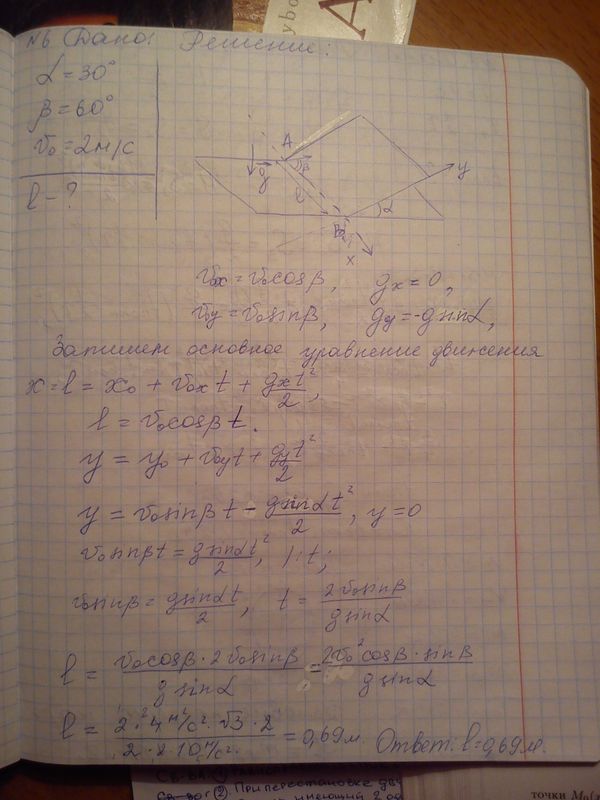 №6 Дано: Решение:
α = 30°
β = 60°
v₀ = 2 м/с
l - ?
A
g
β
l
y
α
B
x
v₀x = v₀cosβ, gx = 0,
v₀y = v₀sinβ, gy = -gsinα,
Запишем основное уравнение движения
x = l = x₀ + v₀x t + gxt²/2,
l = v₀cosβ t.
y = y₀ + v₀yt + gyt²/2
y = v₀sinβ t - gsinαt²/2, y = 0
v₀sinβt = gsinαt²/2, |:t;
v₀sinβ = gsinαt/2, t = 2v₀sinβ/gsinα
l = v₀cosβ · 2v₀sinβ/g sinα = 2v₀²cosβ · sinβ/g sinα
l = 2 · 4 м²/с² · √3 · 2/2 · 2 · 10 м/с² = 0,69 м. Ответ: l = 0,69 м.
② При перестановке
точки M₀(